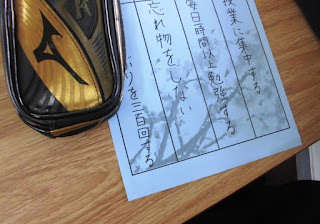 授業に集中する
毎日時間以上勉強する
忘れ物をしない
ぶりを三百回する